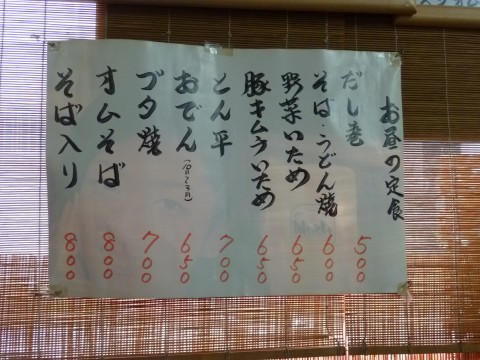 お昼の定食
だし巻 500
そば・うどん焼 600
野菜いため 650
豚キムチいため 650
とん平 700
おでん 650
ブタ焼 700
オムそば 800
そば入り 800